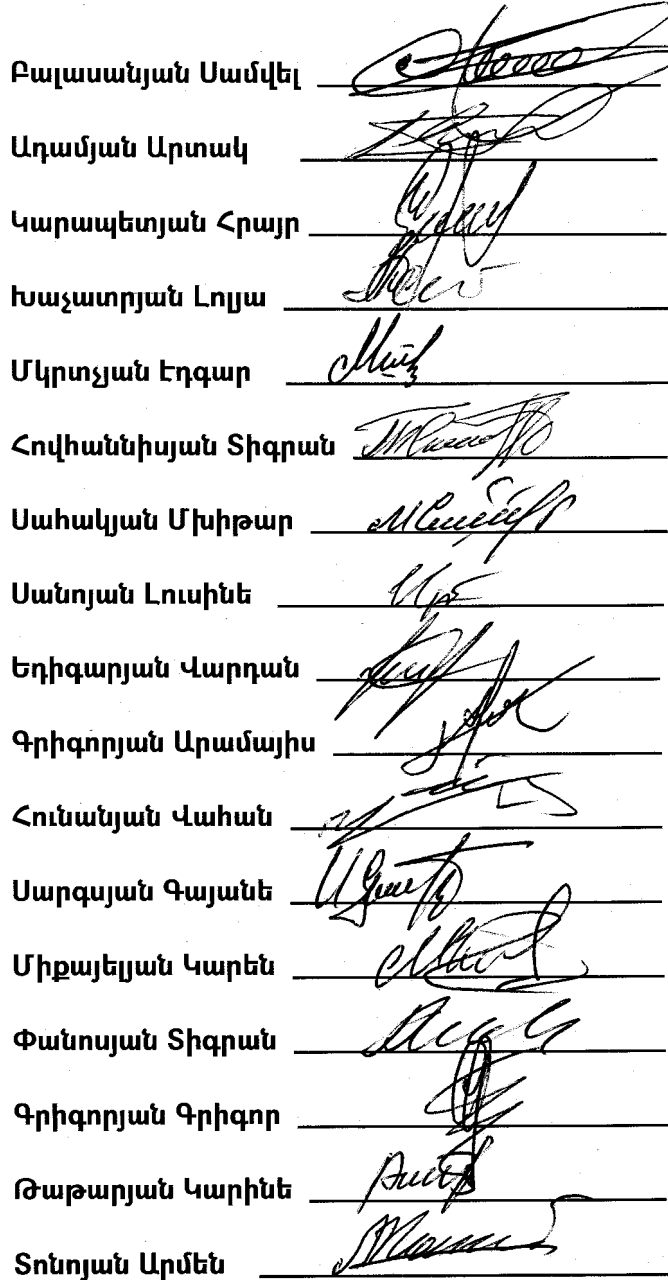 Բալասանյան Սամվել
Ադամյան Արտակ
Կարապետյան Հրայր
Խաչատրյան Լոլյա
Մկրտչյան Էդգար
Հովհաննիսյան Տիգրան
Սահակյան Մխիթար
Սանոյան Լուսինե
Եդիգարյան Վարդան
Գրիգորյան Արամայիս
Հունանյան Վահան
Սարգսյան Գայանե
Միքայելյան Կարեն
Փանոսյան Տիգրան
Գրիգորյան Գրիգոր
Թաթարյան Կարինե
Տոնոյան Արմեն